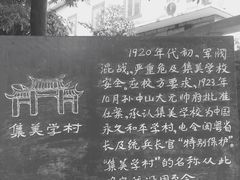 集美学村
1920年代初，军阀
混战，严重危及集美学校
安全。应校方要求，1923年
10月孙中山大元帅府批准
在案，承认集美学校为中国
永久和平学村，电令闽粤省
长及统兵长官“特别保护”
“集美学村”的名称从此